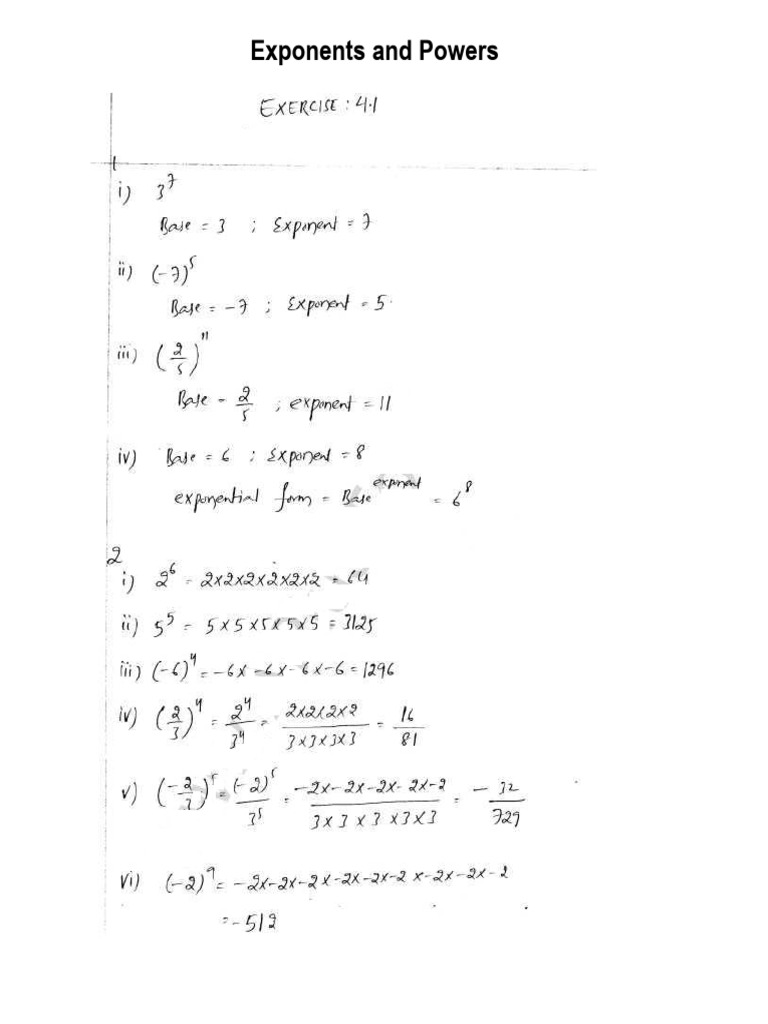 Exponents and Powers
EXERCISE : 4.1
1
i) 3^7
Base = 3 ; Exponent = 7
ii) (-7)^5
Base = -7 ; Exponent = 5.
iii) (2/5)^11
Base - 2/5 ; exponent = 11
iv) Base = 6 ; Exponent = 8
exponential form = Base^exponent = 6^8
2
i) 2^6 = 2x2x2x2x2x2 = 64
ii) 5^5 = 5x5x5x5x5 = 3125
iii) (-6)^4 = -6x -6x -6x -6 = 1296
iv) (2/3)^4 = 2^4/3^4 = 2x2x2x2/3x3x3x3 = 16/81
v) (-2/3)^5 = (-2)^5/3^5 = -2x-2x-2x-2x-2/3x3x3x3x3 = -32/729
vi) (-2)^9 = -2x-2x-2x-2x-2x-2x-2x-2x-2
= -512